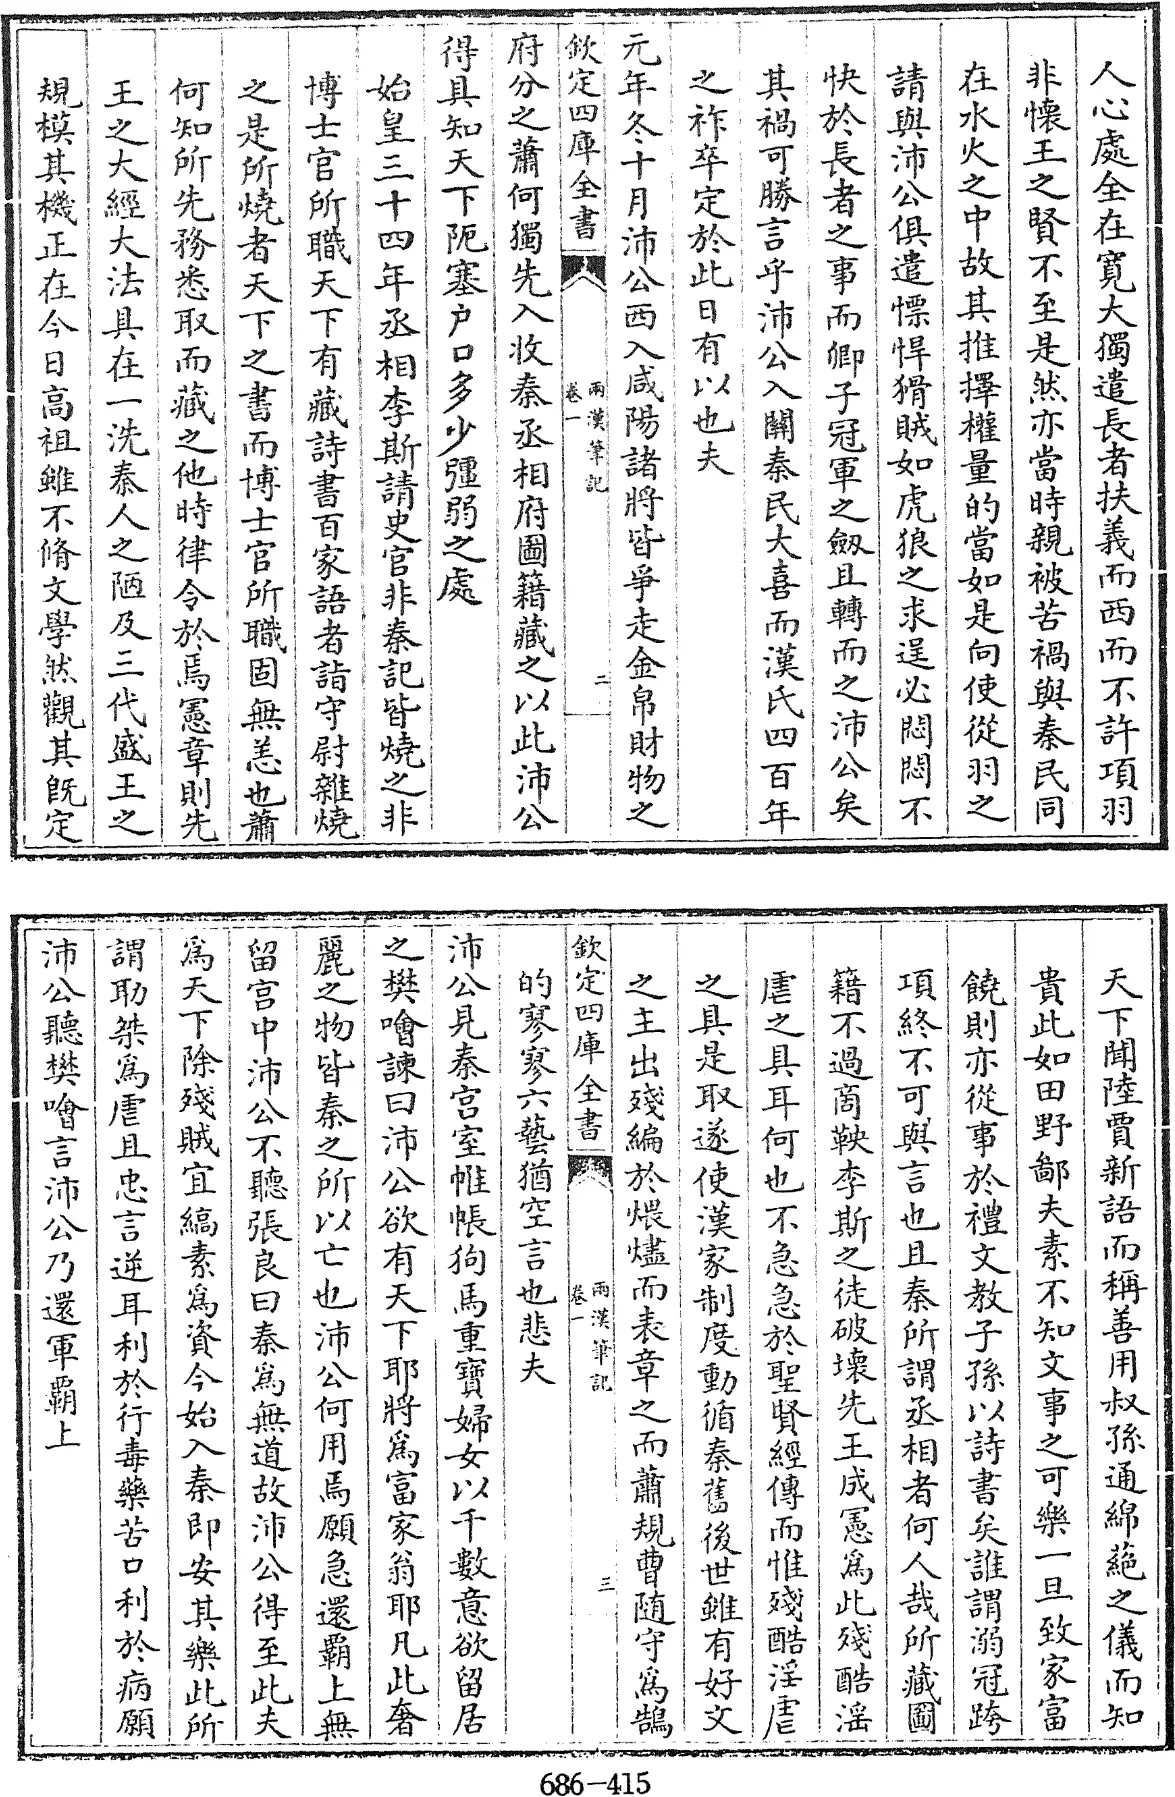 人心處全在寛大獨遣長者扶義而西而不許項羽
非懷王之賢不至是然亦當時親被苦禍與秦民同
在水火之中故其推擇權量的當如是向使從羽之
請與沛公俱遣慓悍猾賊如虎狼之求逞必悶悶不
快於長者之事而卿子冠軍之劔且轉而之沛公矣
其禍可勝言乎沛公入關秦民大喜而漢氏四百年
之祚卒定於此日有以也夫
元年冬十月沛公西入咸陽諸將皆爭走金帛財物之
欽定四庫全書
兩漢筆記
卷一
二
府分之蕭何獨先入收秦丞相府圖籍藏之以此沛公
得具知天下阨塞户口多少彊弱之處
始皇三十四年丞相李斯請史官非秦記皆燒之非
博士官所職天下有藏詩書百家語者詣守尉雜燒
之是所燒者天下之書而博士官所職固無恙也蕭
何知所先務悉取而藏之他時律令於焉憲章則先
王之大經大法具在一洗秦人之陋及三代盛王之
規模其機正在今日高祖雖不脩文學然觀其既定
天下聞陸賈新語而稱善用叔孫通綿蕝之儀而知
貴此如田野鄙夫素不知文事之可樂一旦致家富
饒則亦從事於禮文教子孫以詩書矣誰謂溺冠跨
項終不可與言也且秦所謂丞相者何人哉所藏圖
籍不過商鞅李斯之徒破壞先王成憲爲此殘酷淫
虐之具耳何也不急急於聖賢經傳而惟殘酷淫虐
之具是取遂使漢家制度動循秦舊後世雖有好文
之主出殘編於煨燼而表章之而蕭規曹随守爲鵠
欽定四庫全書
兩漢筆記
卷一
三
的寥寥六藝猶空言也悲夫
沛公見秦宫室帷帳狗馬重寶婦女以千數意欲留居
之樊噲諫曰沛公欲有天下耶將爲富家翁耶凡此奢
麗之物皆秦之所以亡也沛公何用焉願急還霸上無
留宫中沛公不聽張良曰秦爲無道故沛公得至此夫
爲天下除殘賊宜縞素爲資今始入秦即安其樂此所
謂助桀爲虐且忠言逆耳利於行毒藥苦口利於病願
沛公聽樊噲言沛公乃還軍霸上
686-415